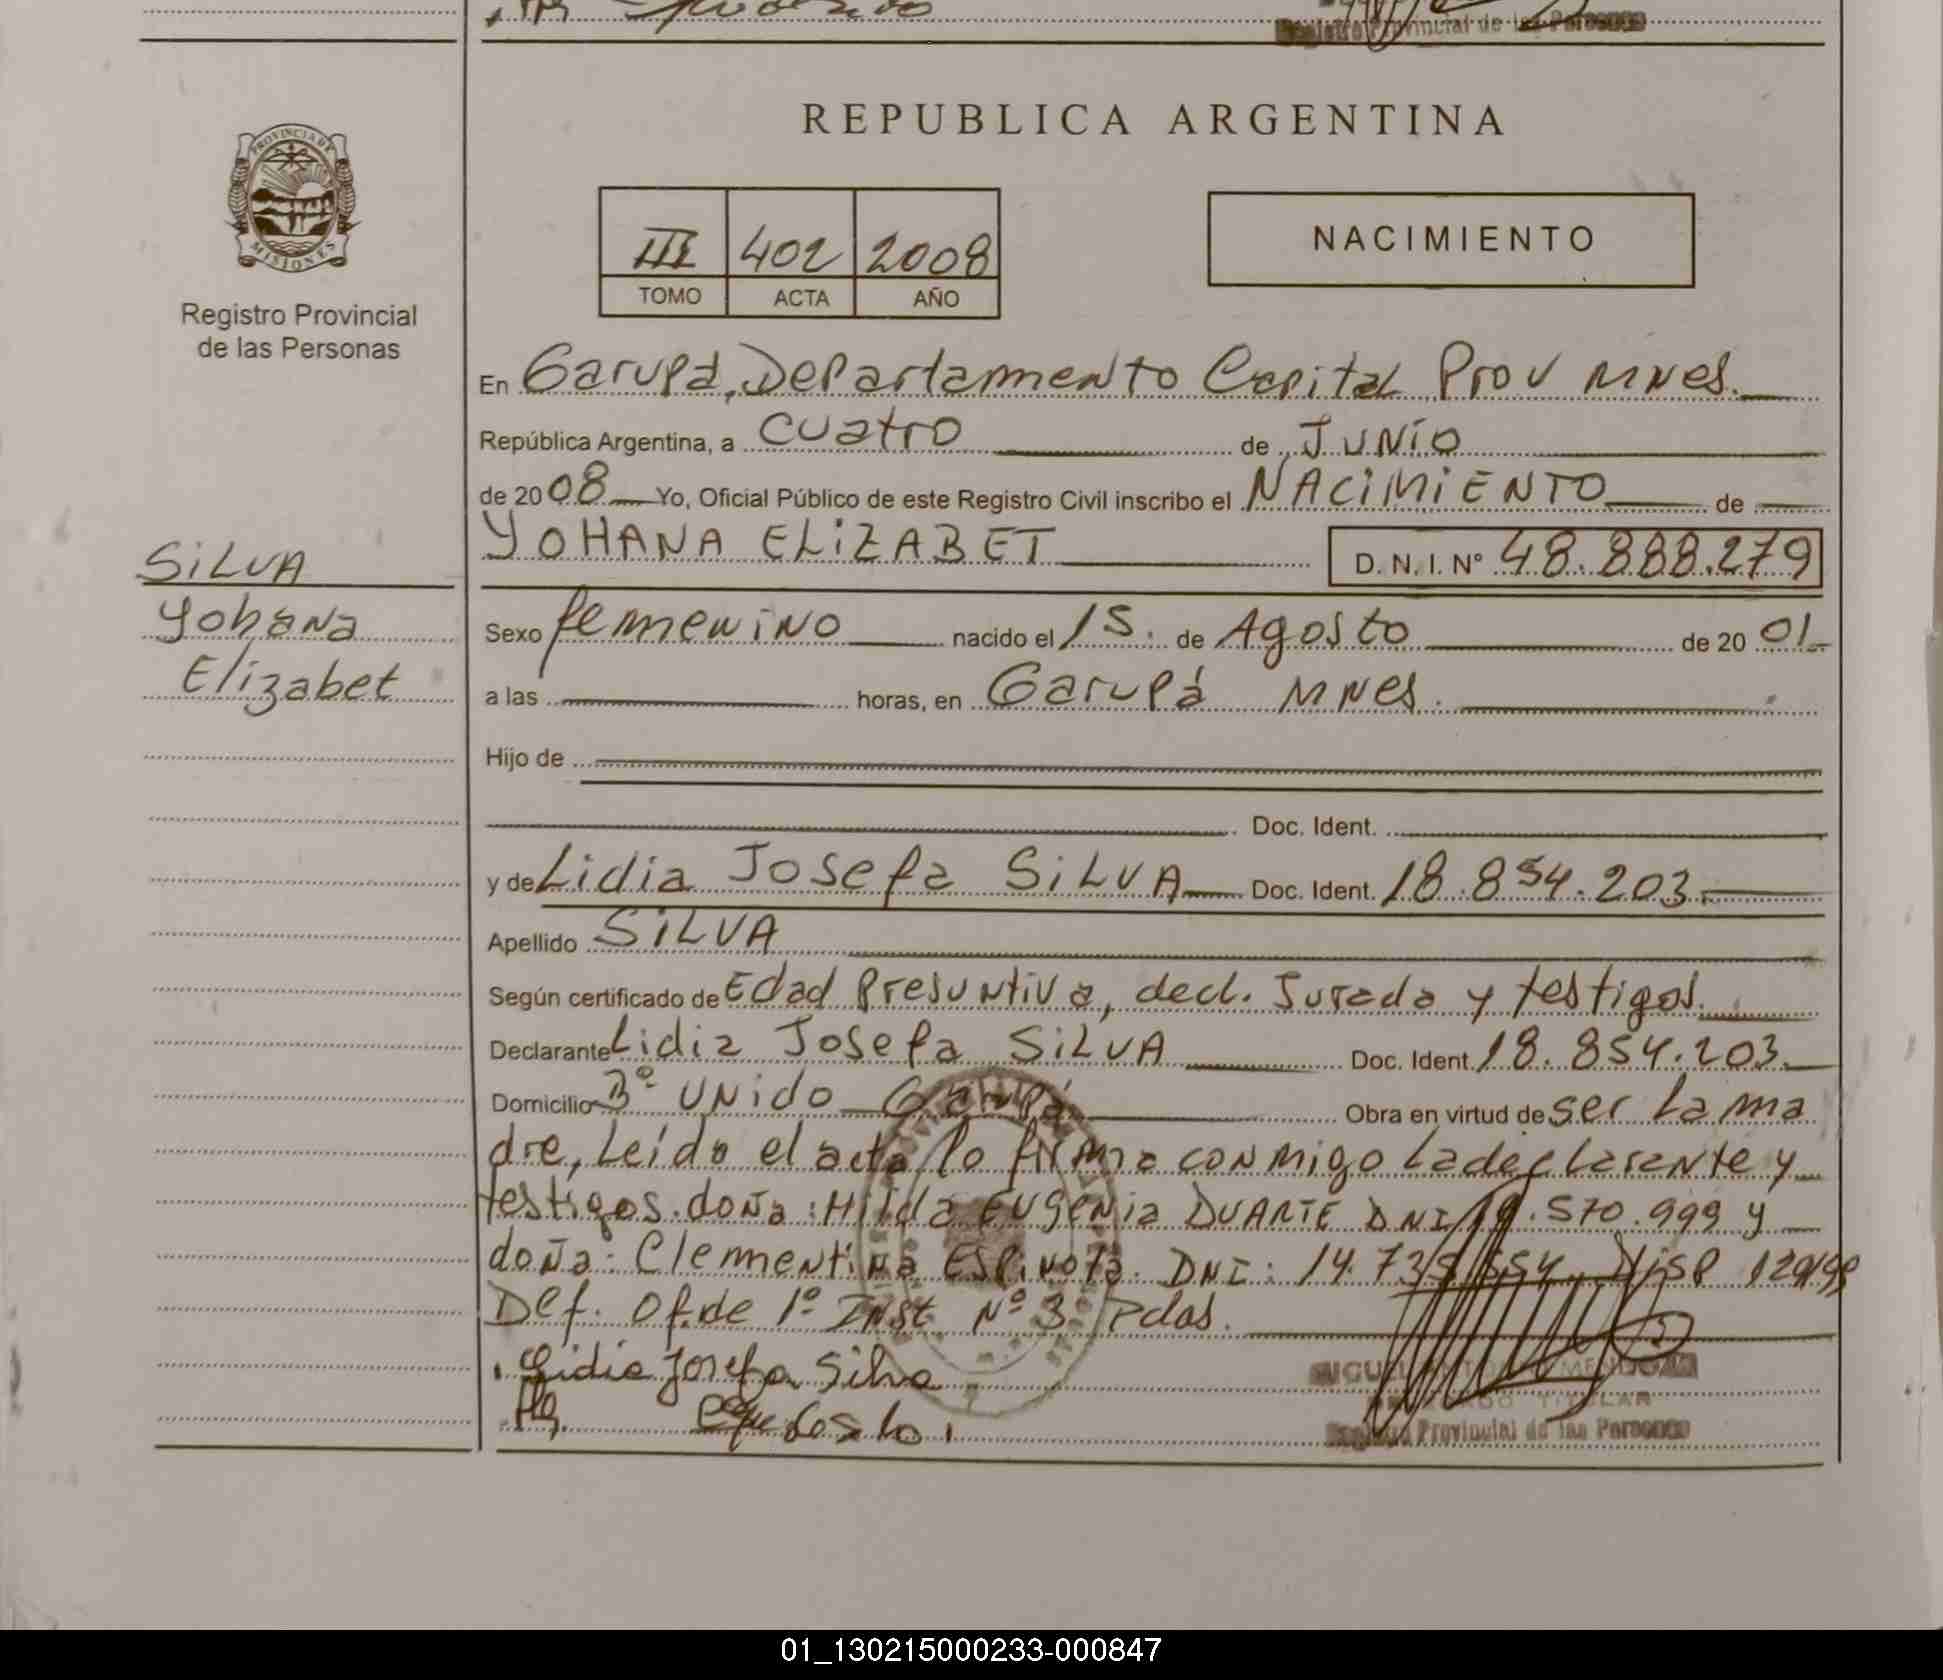 Registro Provincial de las Personas
PROVINCIA DE
MISIONES
Registro Provincial
de las Personas
REPUBLICA ARGENTINA
III 402 2008
TOMO ACTA AÑO
NACIMIENTO
En Garupá, Departamento Capital Prov Mnes.
República Argentina, a cuatro de Junio
de 2008 Yo, Oficial Público de este Registro Civil inscribo el NACIMIENTO de
YOHANA ELIZABET D. N. I. Nº 48.888.279
SILVA
Yohana
Elizabet
Sexo femenino nacido el 15. de Agosto de 2001-
a las horas, en Garupá Mnes.
Hijo de
Doc. Ident.
y de Lidia Josefa SILVA Doc. Ident. 18.854.203.
Apellido SILVA
Según certificado de Edad Presuntiva, decl. Jurada y testigos.
Declarante Lidia Josefa SILVA Doc. Ident. 18.854.203.
Domicilio Bº Unido Garupá Obra en virtud de ser la ma
dre, Leído el acta lo firma conmigo La declarante y
testigos. doña: Hilda Eugenia DUARTE DNI .570.999 y
doña: Clementina DNI: 14. Disp
Def. Of. de 1º Inst Nº 3 Pdas.
Lidia Josefa Silva
MIGUEL ANTONIO MENDOZA
TITULAR
Registro Provincial de las Personas
01_130215000233-000847